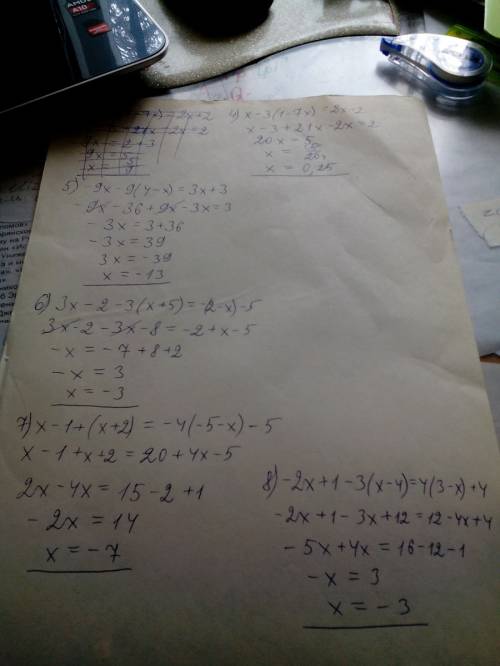 AMD
A10
4) x-3(1-7x)=2x+2
x-3+21x-2x=2
20x=5
x=5/20
x=0,25
5) -9x-9(4-x)=3x+3
-9x-36+9x-3x=3
-3x=3+36
-3x=39
3x=-39
x=-13
6) 3x-2-3(x+5)=-(2-x)-5
3x-2-3x-8=-2+x-5
-x=-7+8+2
-x=3
x=-3
7) x-1+(x+2)=-4(-5-x)-5
x-1+x+2=20+4x-5
2x-4x=15-2+1
-2x=14
x=-7
8) -2x+1-3(x-4)=4(3-x)+4
-2x+1-3x+12=12-4x+4
-5x+4x=16-12-1
-x=3
x=-3